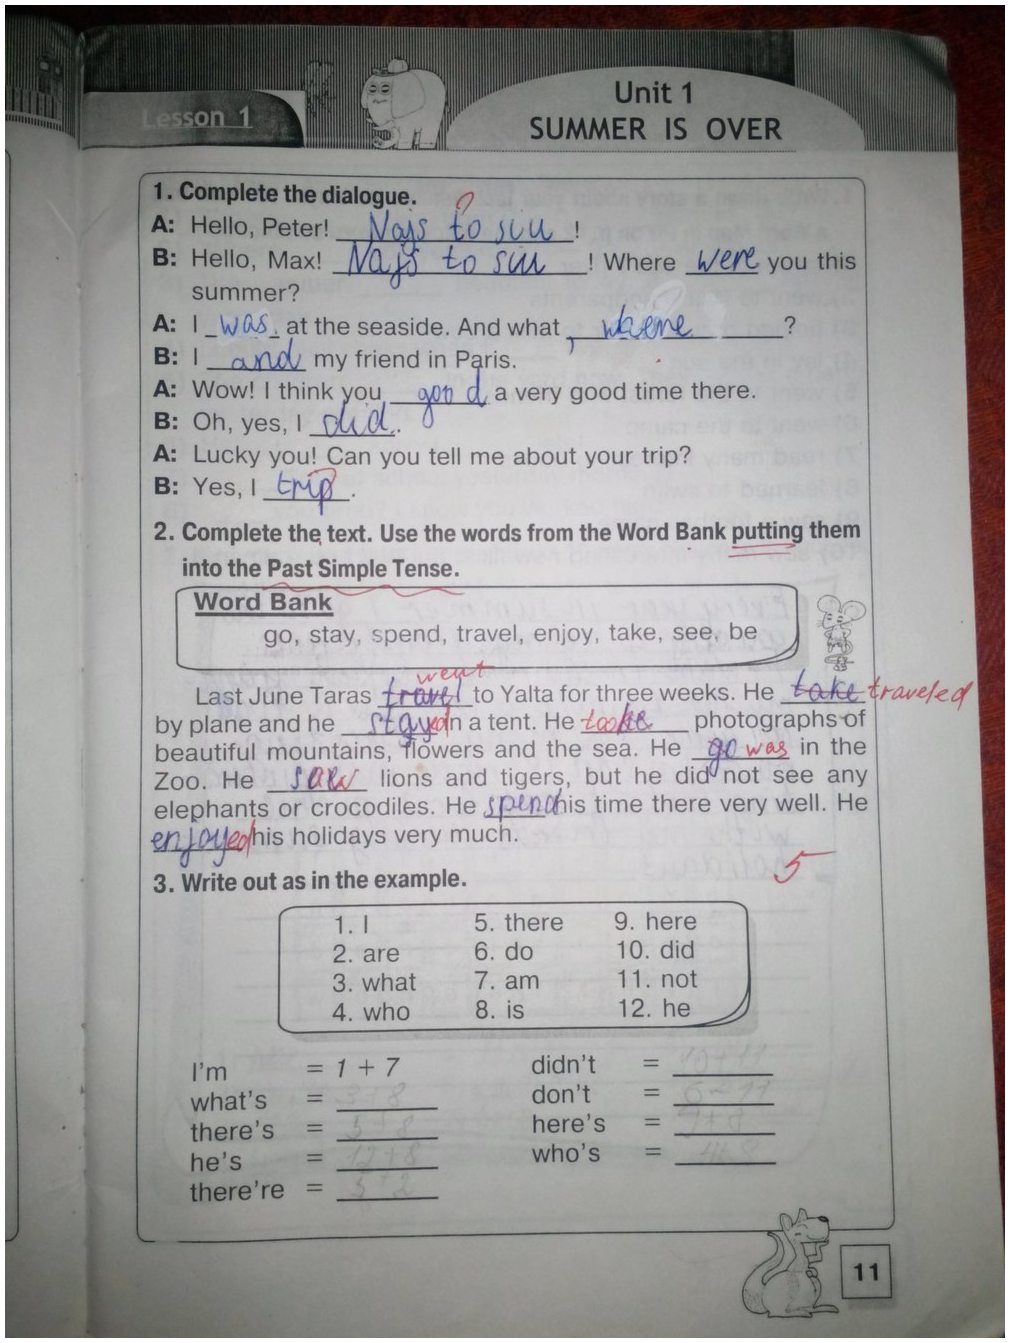 Lesson 1
Unit 1
SUMMER IS OVER
1. Complete the dialogue.
?
A: Hello, Peter! Najs to siu !
B: Hello, Max! Najs to siu ! Where were you this
summer?
A: I was at the seaside. And what , ?
B: I and my friend in Paris.
A: Wow! I think you good a very good time there.
B: Oh, yes, I did.
A: Lucky you! Can you tell me about your trip?
B: Yes, I trip.
2. Complete the text. Use the words from the Word Bank putting them
into the Past Simple Tense.
Word Bank
go, stay, spend, travel, enjoy, take, see, be
went
Last June Taras travel to Yalta for three weeks. He take traveled
by plane and he stayed in a tent. He photographs of
beautiful mountains, flowers and the sea. He go was in the
Zoo. He saw lions and tigers, but he did not see any
elephants or crocodiles. He spend his time there very well. He
enjoyed his holidays very much.
5
3. Write out as in the example.
1. I 5. there 9. here
2. are 6. do 10. did
3. what 7. am 11. not
4. who 8. is 12. he
I'm = 1 + 7 didn't = 10+11
what's = 3+8 don't = 6+11
there's = 5+8 here's =
he's = 12+8 who's =
there're = 5+2
11